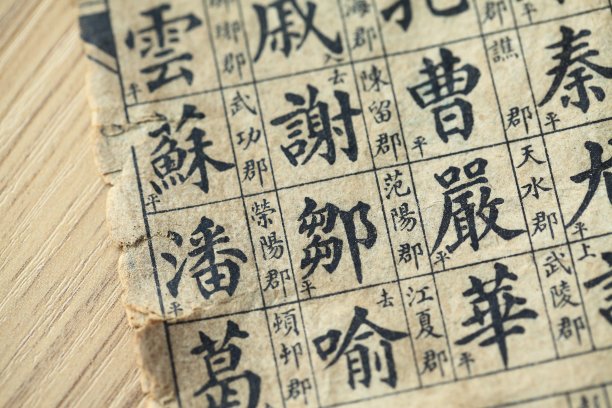 秦
郡
譙郡
天水郡
武陵郡
孔
曹
嚴
華
平
平
平
平
海郡
陳留郡
范陽郡
江夏郡
戚
謝
鄒
喻
入
去
平
去
郡
武功郡
滎陽郡
頓邱郡
雲
蘇
潘
葛
平
平
平